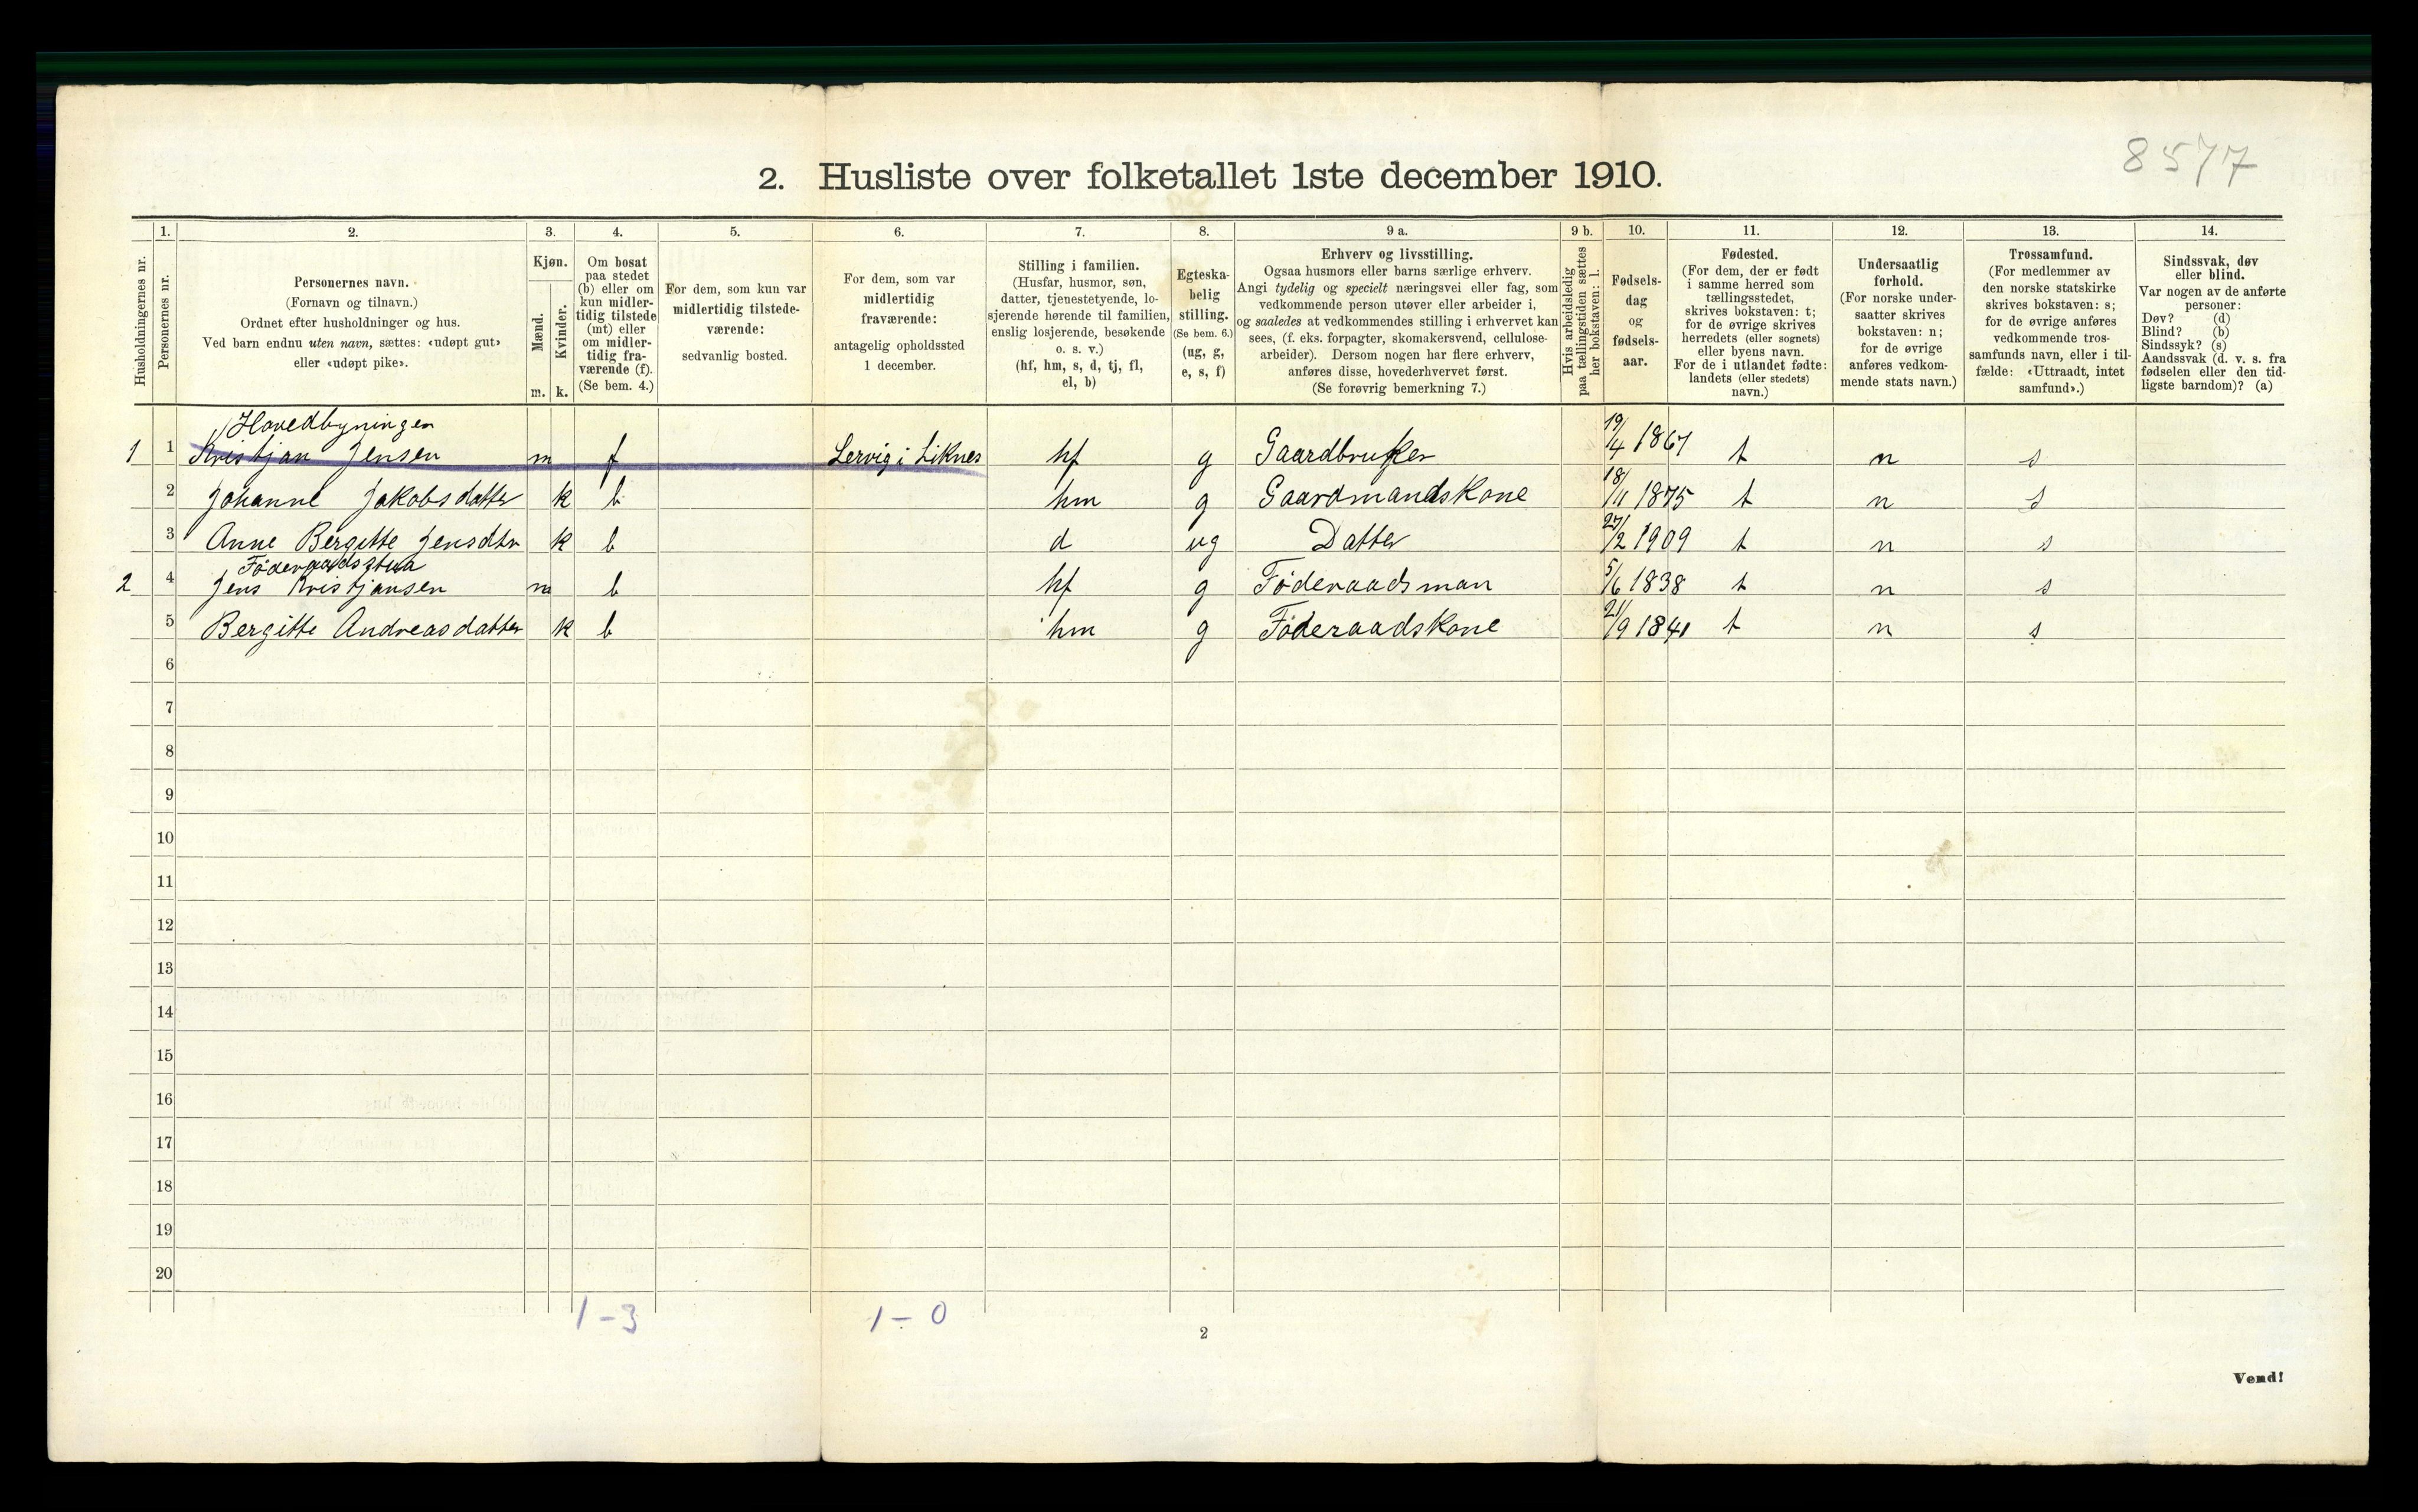 8577
2. Husliste over folketallet 1ste december 1910.
Husholdningernes nr.
1.
Personernes nr.
2.
Personernes navn.
(Fornavn og tilnavn.)
Ordnet efter husholdninger og hus.
Ved barn endnu uten navn, sættes: «udøpt gut»
eller «udøpt pike».
3.
Kjøn.
Mænd.
Kvinder.
m. k.
4.
Om bosat
paa stedet
(b) eller om
kun midler-
tidig tilstede
(mt) eller
om midler-
tidig fra-
værende (f).
(Se bem. 4.)
5.
For dem, som kun var
midlertidig tilstede-
værende:
sedvanlig bosted.
6.
For dem, som var
midlertidig
fraværende:
antagelig opholdssted
1 december.
7.
Stilling i familien.
(Husfar, husmor, søn,
datter, tjenestetyende, lo-
sjerende hørende til familien,
enslig losjerende, besøkende
o. s. v.)
(hf, hm, s, d, tj, fl,
el, b)
8.
Egteska-
belig
stilling.
(Se bem. 6.)
(ug, g,
e, s, f)
9 a.
Erhverv og livsstilling.
Ogsaa husmors eller barns særlige erhverv.
Angi tydelig og specielt næringsvei eller fag, som
vedkommende person utøver eller arbeider i,
og saaledes at vedkommendes stilling i erhvervet kan
sees, (f. eks. forpagter, skomakersvend, cellulose-
arbeider). Dersom nogen har flere erhverv,
anføres disse, hovederhvervet først.
(Se forøvrig bemerkning 7.)
9 b.
Hvis arbeidsledig
paa tællingstiden sættes
her bokstaven: l.
10.
Fødsels-
dag
og
fødsels-
aar.
11.
Fødested.
(For dem, der er født
i samme herred som
tællingsstedet,
skrives bokstaven: t;
for de øvrige skrives
herredets (eller sognets)
eller byens navn.
For de i utlandet fødte:
landets (eller stedets)
navn.)
12.
Undersaatlig
forhold.
(For norske under-
saatter skrives
bokstaven: n;
for de øvrige
anføres vedkom-
mende stats navn.)
13.
Trossamfund.
(For medlemmer av
den norske statskirke
skrives bokstaven: s;
for de øvrige anføres
vedkommende tros-
samfunds navn, eller i til-
fælde: «Uttraadt, intet
samfund».)
14.
Sindssvak, døv
eller blind.
Var nogen av de anførte
personer:
Døv? (d)
Blind? (b)
Sindssyk? (s)
Aandssvak (d. v. s. fra
fødselen eller den tid-
ligste barndom)? (a)
Hovedbyningen
1 1 Kristjan Jensen m f Lervig i Liknes hf g Gaardbruker 19/4 1867 t n s
2 Johanne Jakobsdatter k b hm g Gaardmandskone 18/11 1875 t n s
3 Anne Bergitte Jensdtr k b d ug Datter 27/2 1909 t n s
Föderaadsstua
2 4 Jens Kristjansen m b hf g Föderaadsman 5/6 1838 t n s
5 Bergitte Andreasdatter k b hm g Föderaadskone 21/9 1841 t n s
6
7
8
9
10
11
12
13
14
15
16
17
18
19
20
1-3 1-0
2
Vend!